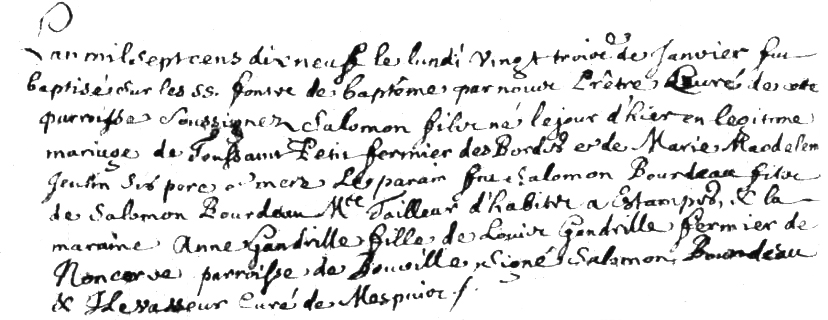 L'an mil sept cens dix neuf le lundi vingt trois.e de Janvier fut
baptisé sur les SS. fonts de baptême par nous Prêtre Curé de cette
parroisse soussigné Salomon fils né le jour d'hier en legitime
mariage de Toussaint Petit fermier des Bordes et de Marie Magdelene
ses pere et mere Le parain fut Salomon Bourdeau fils
de Salomon Bourdeau M.tre Tailleur d'habits a Estampes, & la
maraine Anne Gandrille fille de Louis Gandrille fermier de
parroisse de Bouville signé Salomon Bourdeau
& Levasseur Curé de Mespuis